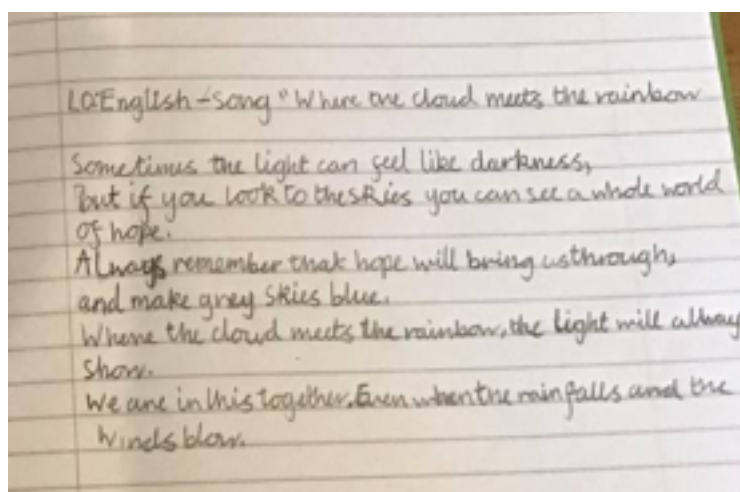 LO:English-Song "Where the cloud meets the rainbow
Sometimes the light can feel like darkness,
but if you look to the skies you can see a whole world
of hope.
Always remember that hope will bring us through,
and make grey skies blue.
Where the cloud meets the rainbow, the light will allway
show.
We are in this together. Even when the rain falls and the
winds blow.